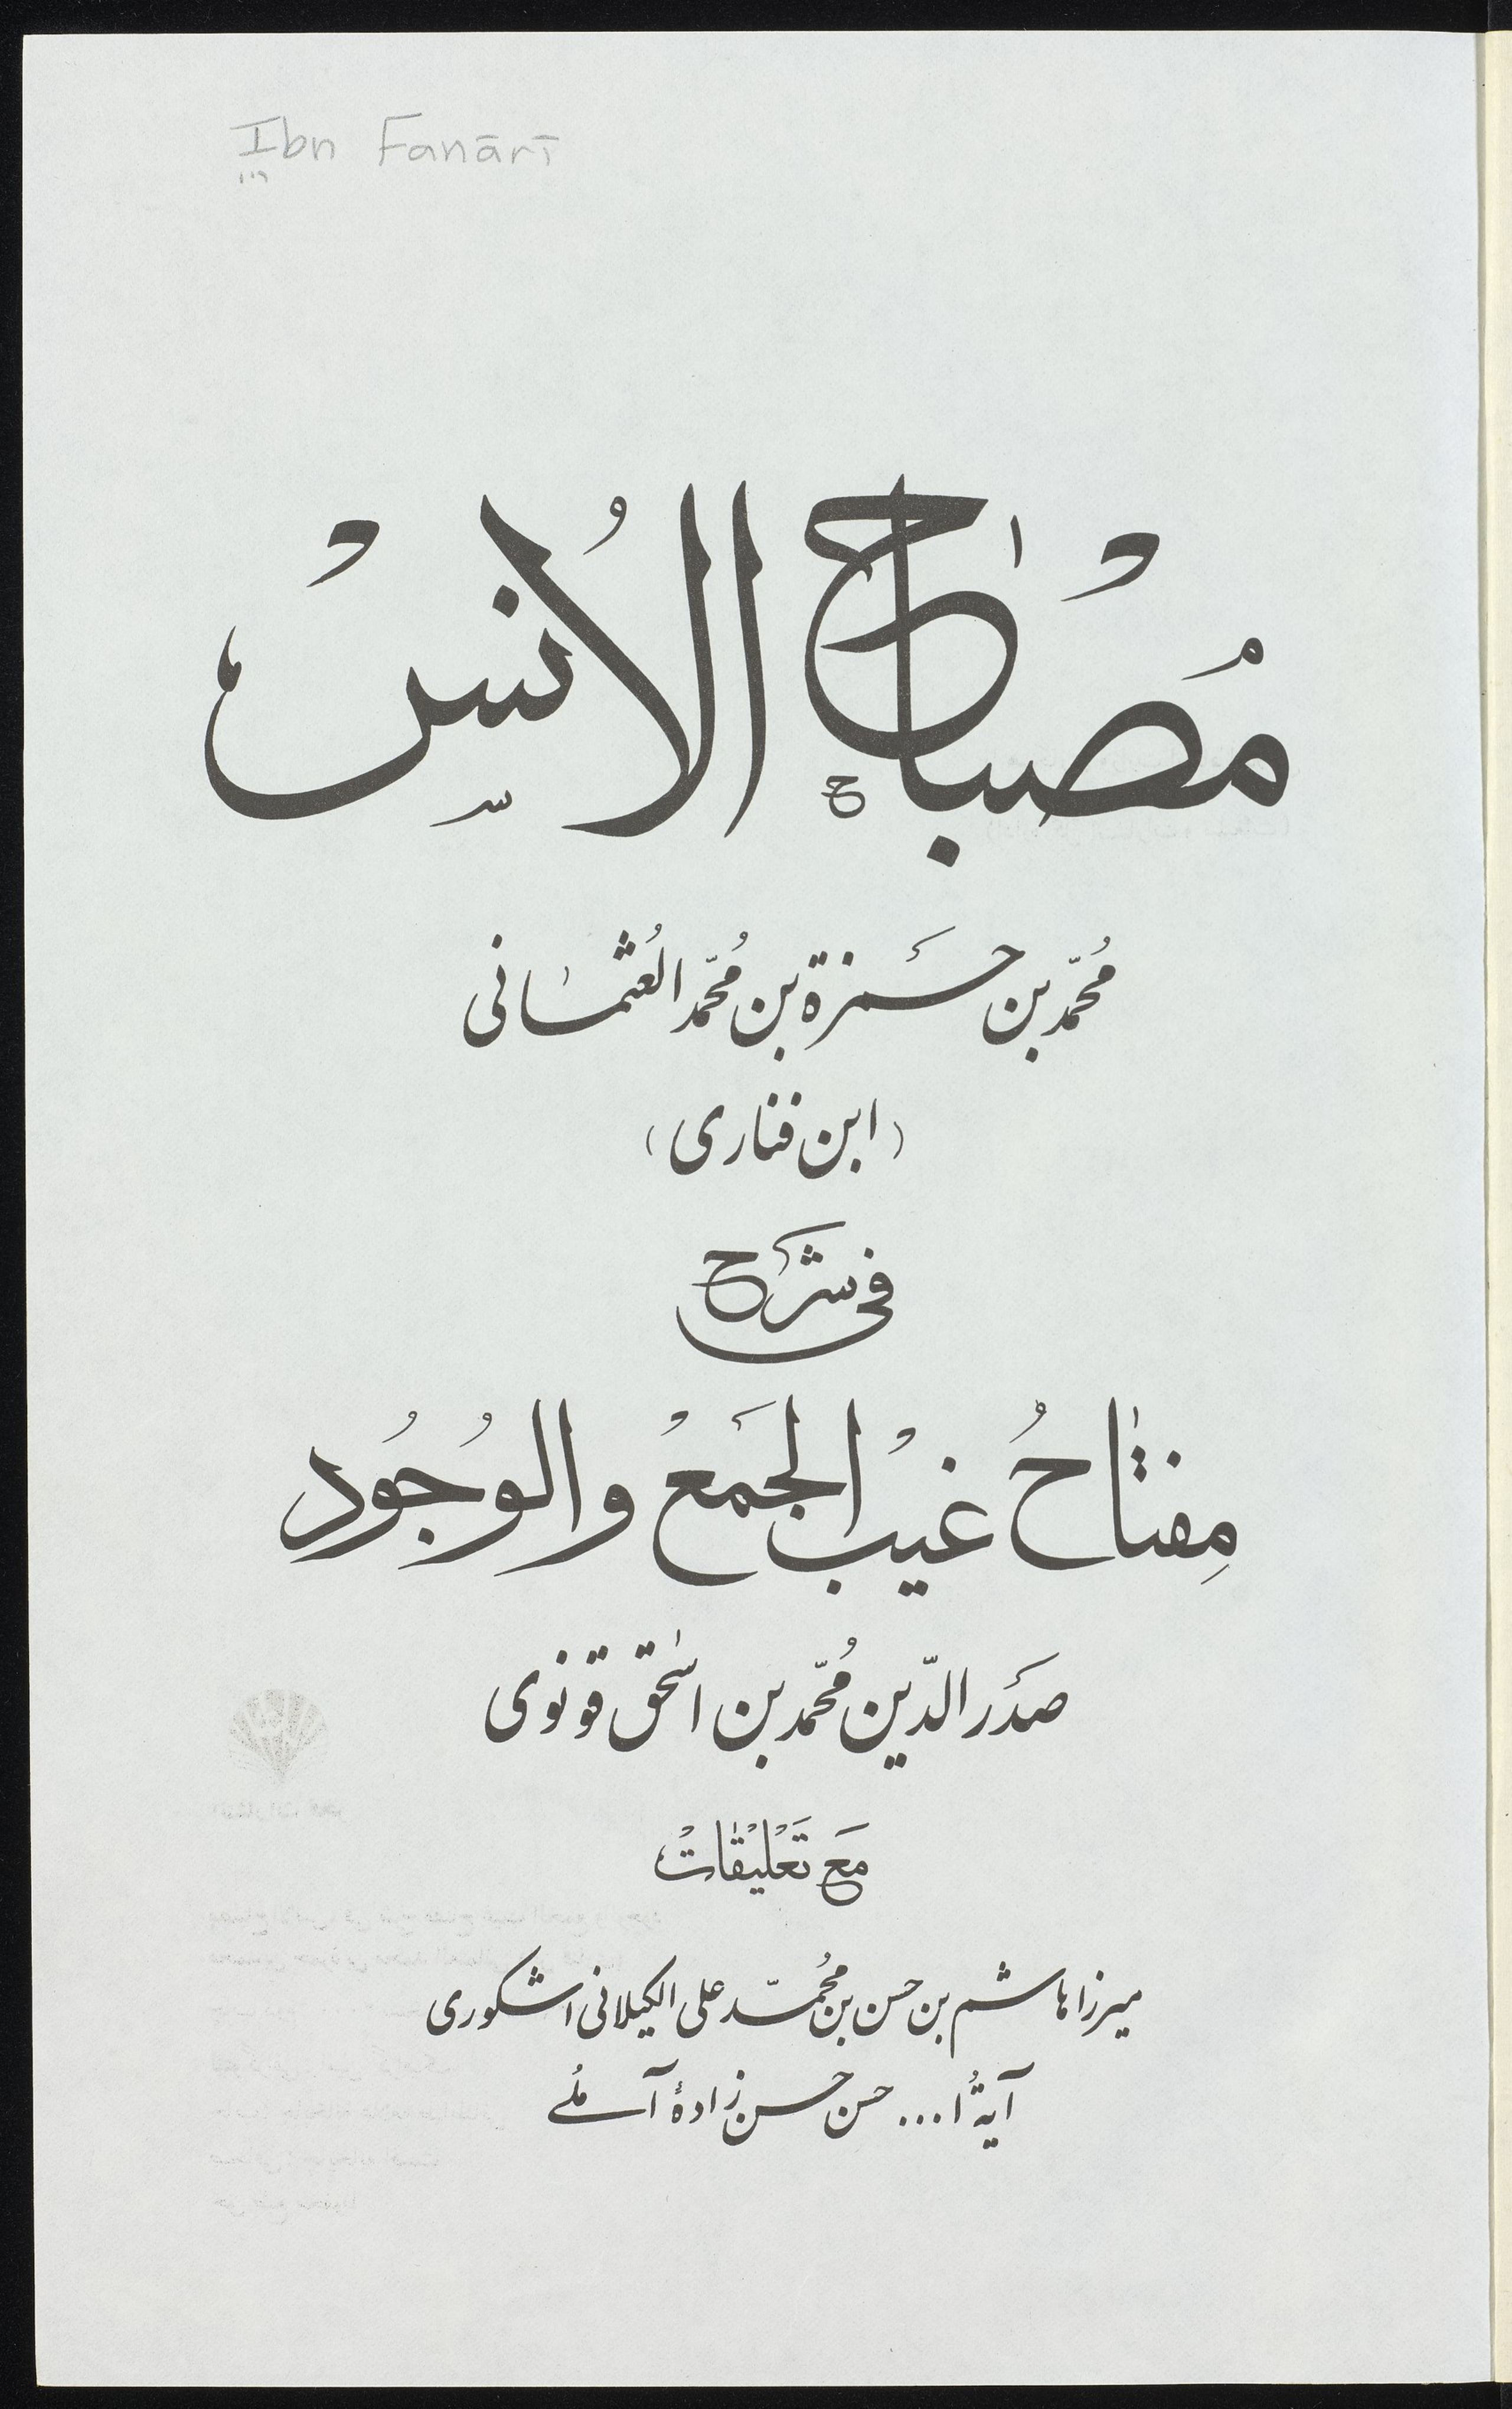 Ibn Fanārī
مُصْباح الاُنسْ
مُحمّد بن حَمزة بن مُحمّد العُثمانی
(ابن فناری)
فی شَرح
مِفتاحُ غیبْ الجَمعْ والوُجُود
صَدَر الدّین مُحمّد بن اسحٰق قونوی
مَع تَعْلیْقاتْ
میرزا هاشم بن حسن بن مُحمّد علی الکیلانی اشکوری
آیةُ ا... حسن حسن زادهٔ آملُے